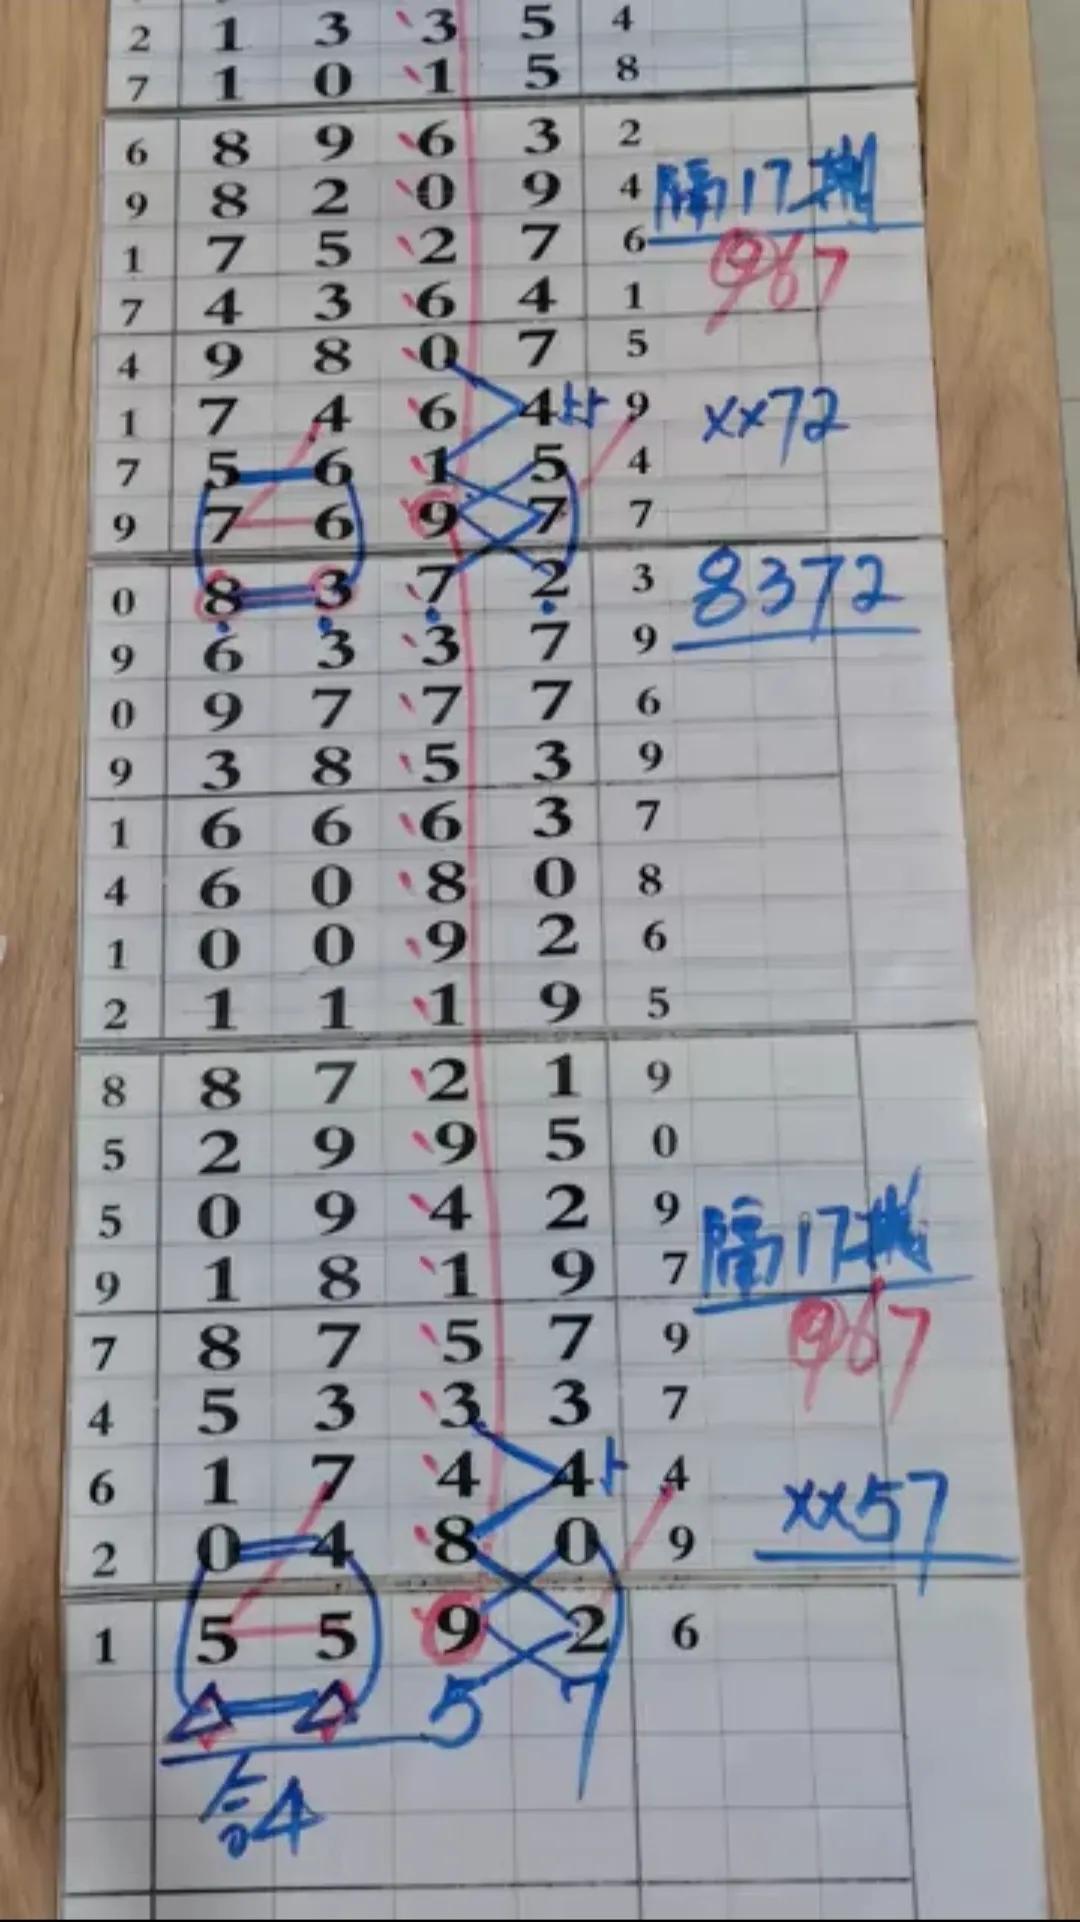 2 1 3 3 5 4
7 1 0 1 5 8
6 8 9 6 3 2
9 8 2 0 9 4 隔17期
1 7 5 2 7 6
967
7 4 3 6 4 1
4 9 8 0 7 5
1 7 4 6 4 9 xx72
7 5 6 1 5 4
9 7 6 9 7 7
0 8 3 7 2 3 8372
9 6 3 3 7 9
0 9 7 7 7 6
9 3 8 5 3 9
1 6 6 6 3 7
4 6 0 8 0 8
1 0 0 9 2 6
2 1 1 1 9 5
8 8 7 2 1 9
5 2 9 9 5 0
5 0 9 4 2 9 隔17期
9 1 8 1 9 7
7 8 7 5 7 9 967
4 5 3 3 3 7
6 1 7 4 4 4 xx57
2 0 4 8 0 9
1 5 5 9 2 6
5 7
合4